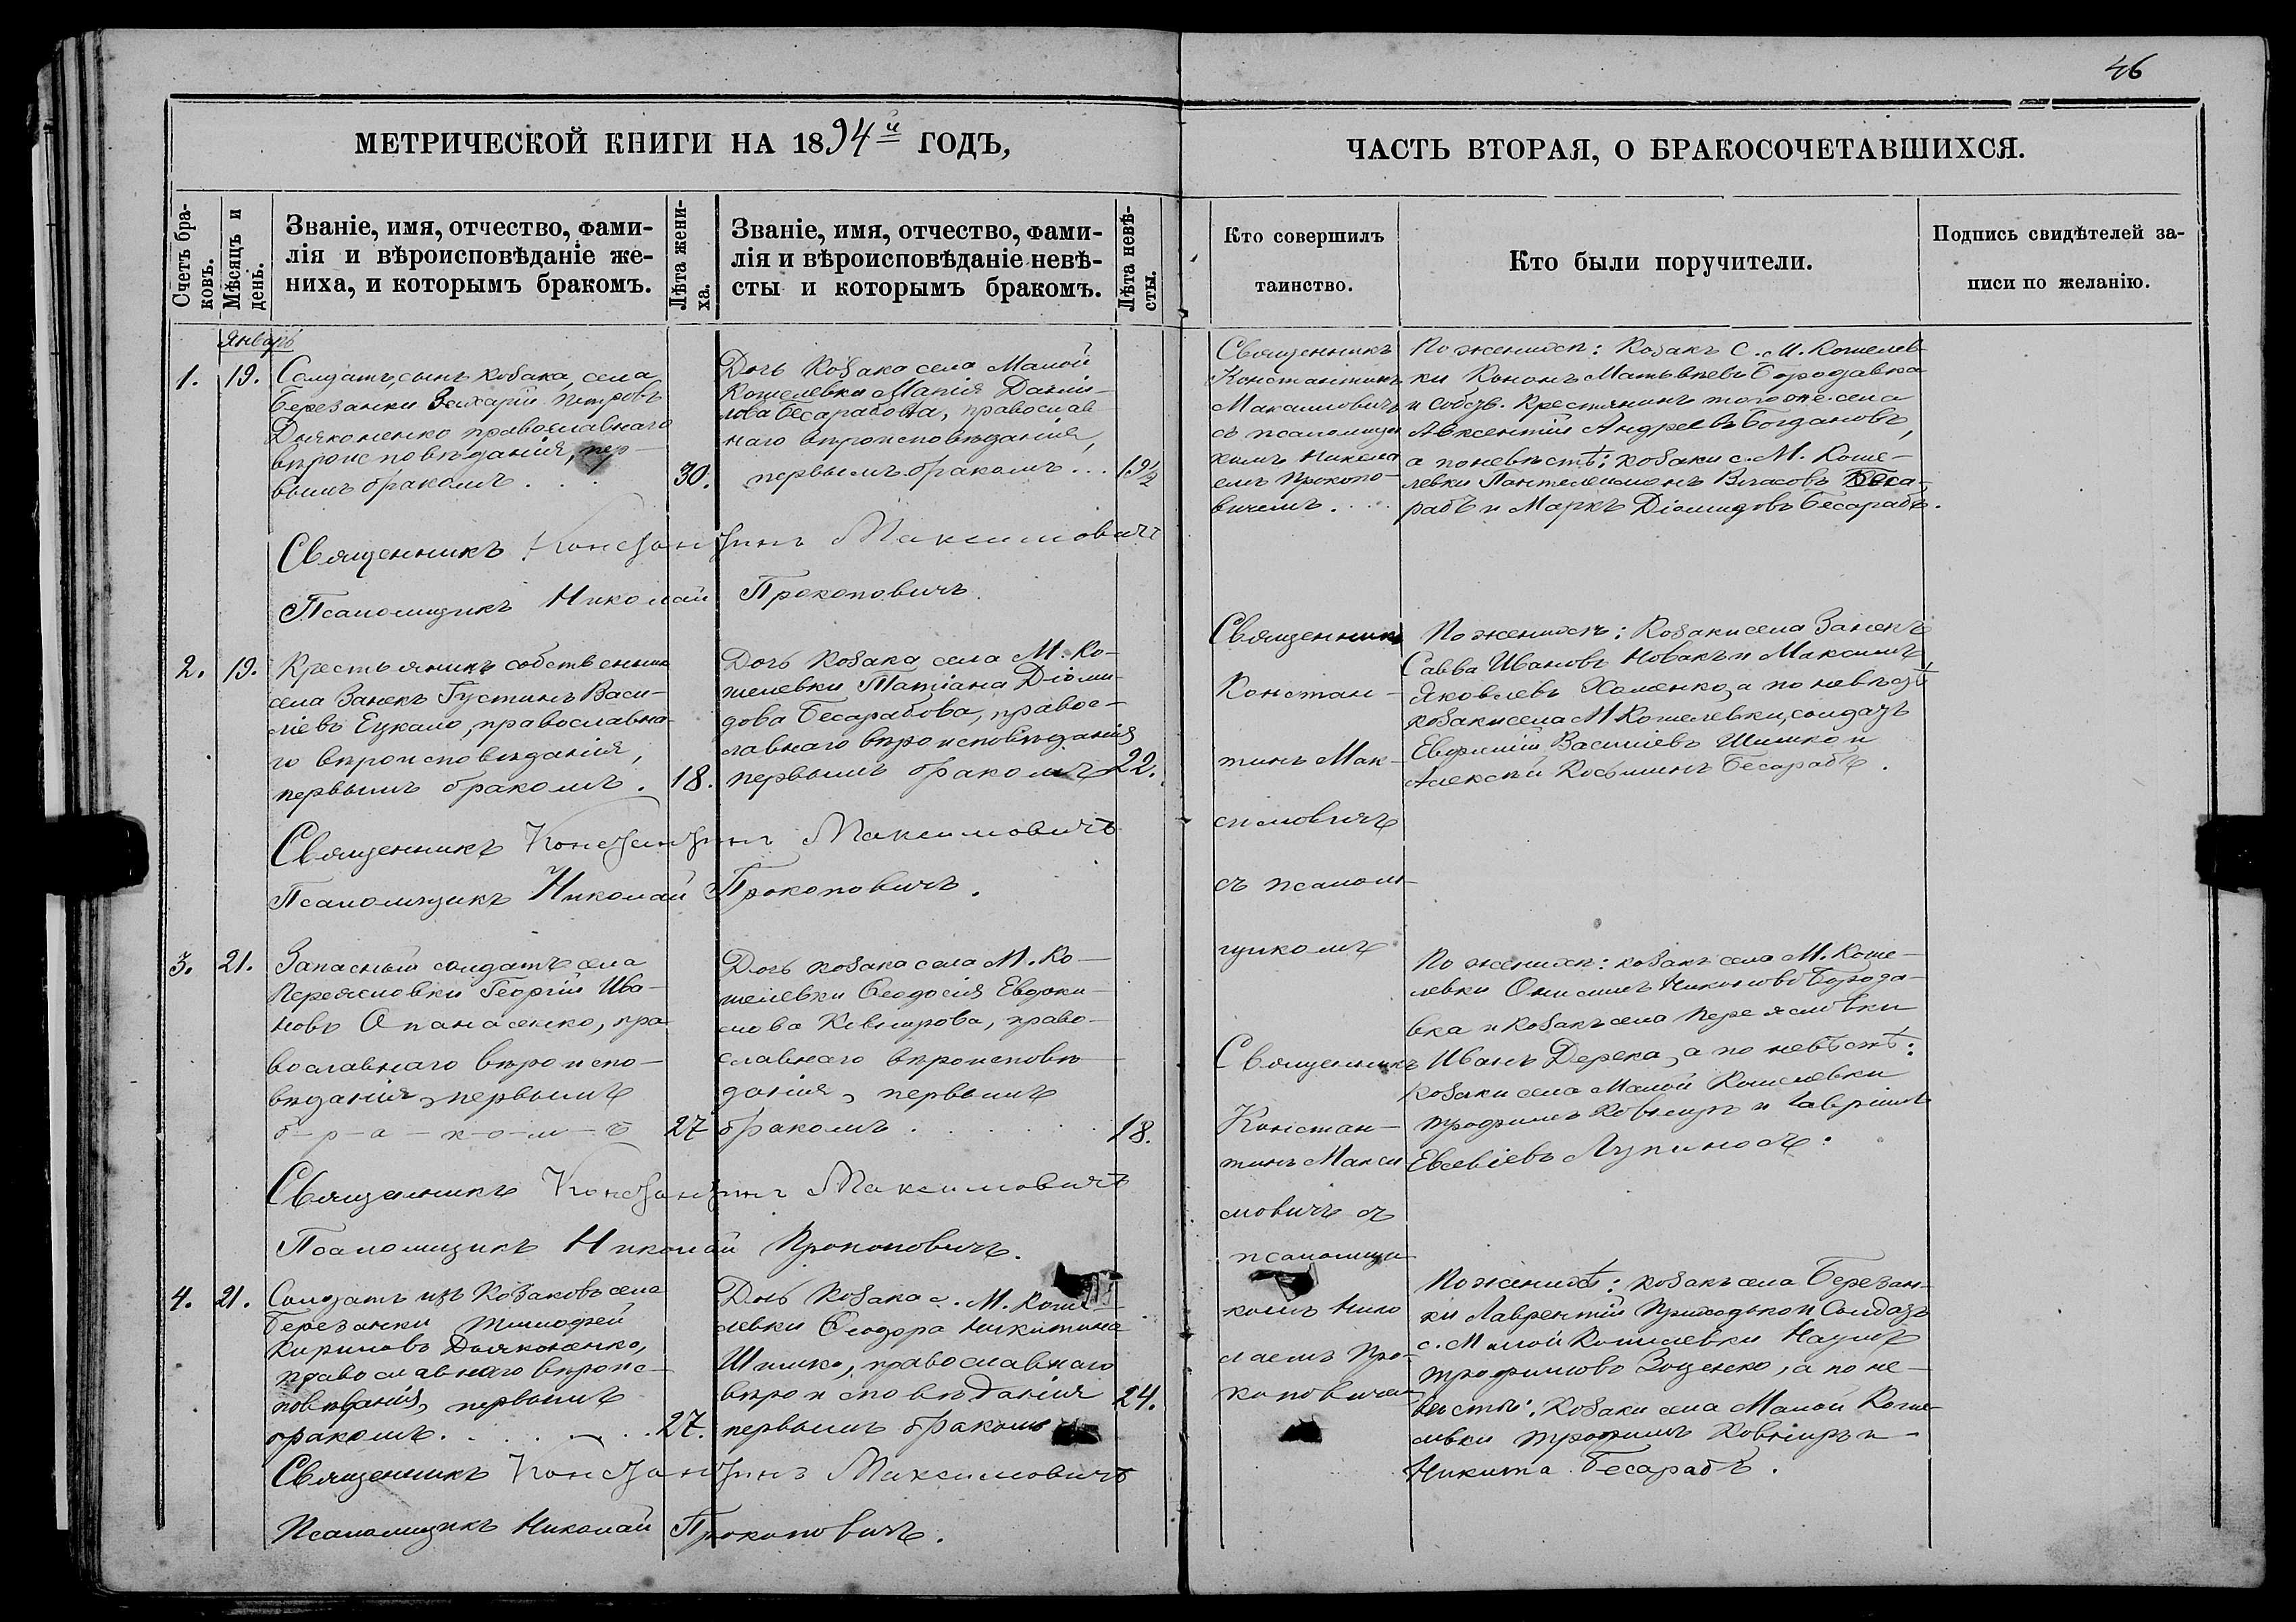 46
МЕТРИЧЕСКОЙ КНИГИ НА 1894й ГОДЪ,
ЧАСТЬ ВТОРАЯ, О БРАКОСОЧЕТАВШИХСЯ.
Счетъ бра-
ковъ.
Мѣсяцъ и
день.
Званіе, имя, отчество, фами-
лія и вѣроисповѣданіе же-
ниха, и которымъ бракомъ.
Лѣта жени-
ха.
Званіе, имя, отчество, фами-
лія и вѣроисповѣданіе невѣ-
сты и которымъ бракомъ.
Лѣта невѣ-
сты.
Кто совершилъ
таинство.
Кто были поручители.
Подпись свидѣтелей за-
писи по желанію.
Январь
1.
19.
Солдатъ, сынъ козака, села
Березанки Захарій Петровъ
Дьяконенко православнаго
вѣроисповѣданія, пер-
вымъ бракомъ . . .
30.
Дочь козака села Малой
Кошелевки Марія Даніи-
лова Бесарабова, православ-
наго вѣроисповѣданія,
первымъ бракомъ . . .
19½
Священникъ
Константинъ
Максимовичъ
съ псаломщи
комъ Никола
емъ Прокопо-
вичемъ . . .
По женихѣ: Козакъ с. М. Кошелев-
ки Кононъ Матвѣевъ Бородавка
и собств. Крестянинъ того же села
Авксентій Андреевъ Богдановъ,
а по невѣстѣ: козаки с. М. Коше-
левки Пантелеимонъ Власовъ Беса-
рабъ и Маркъ Діомидовъ Бесарабъ.
Священникъ Константинъ Максимовичъ
Псаломщикъ Николай Прокоповичъ.
2.
19.
Крестьянинъ собственникъ
села Занекъ Густинъ Васи-
ліевъ Ецкало, православна-
го вѣроисповѣданія,
первымъ бракомъ .
18.
Дочь козака села М. Ко-
шелевки Татіана Діоми-
дова Бесарабова, правос-
лавнаго вѣроисповѣданія
первымъ бракомъ
22.
Священникъ
Констан-
тинъ Мак-
симовичъ
съ псалом-
щикомъ
По женихѣ: Козаки села Занекъ
Савва Ивановъ Новакъ и Максимъ
Яковлевъ Хоменко, а по невѣстѣ
козаки села М Кошелевки, солдатъ
Евфимій Василіевъ Шишко и
Алексѣй Косьминъ Бесарабъ.
Священникъ Константинъ Максимовичъ
Псаломщикъ Николай Прокоповичъ.
3.
21.
Запасный солдатъ села
Переясловки Георгій Ива-
новъ Опанасенко, пра-
вославнаго вѣроиспо-
вѣданія, первымъ
б-р-а-к-о-м-ъ
27
Дочь козака села М. Ко-
шелевки Ѳеодосія Евдоки-
мова Ковнирова, право-
славнаго вѣроисповѣ-
данія, первымъ
бракомъ . . . . .
18.
Священникъ
Констан-
тинъ Макси
мовичъ съ
псаломщи
комъ Нико
лаемъ Про-
коповичемъ
По женихѣ: козакъ села М. Коше-
левки Онисимъ Никоновъ Борода-
вка и козакъ села Переясловки
Иванъ Дерека, а по невѣстѣ:
козаки села Малой Кошелевки
Трофимъ Ковниръ и Гавріилъ
Евсевіевъ Лупиносъ.
Священникъ Константинъ Максимовичъ
Псаломщикъ Николай Прокоповичъ.
4.
21.
Солдатъ изъ Козаковъ села
Березанки Тимофей
Кириловъ Дьяконенко,
православнаго вѣроис-
повѣданія, первымъ
бракомъ . . . . . .
27.
Дочь Козака с. М. Коше-
левки Ѳеодора Никитина
Шишко, православнаго
вѣроисповѣданія
первымъ бракомъ
24.
По женихѣ: козакъ села Березан-
ки Лаврентій Приходько и Солдатъ
с. Малой Кошелевки Наумъ
Трофимовъ Зоценко, а по не-
вѣстѣ: Козаки села Малой Коше-
левки Трофимъ Ковниръ и
Никита Бесарабъ.
Священникъ Константинъ Максимовичъ
Псаломщикъ Николай Прокоповичъ.